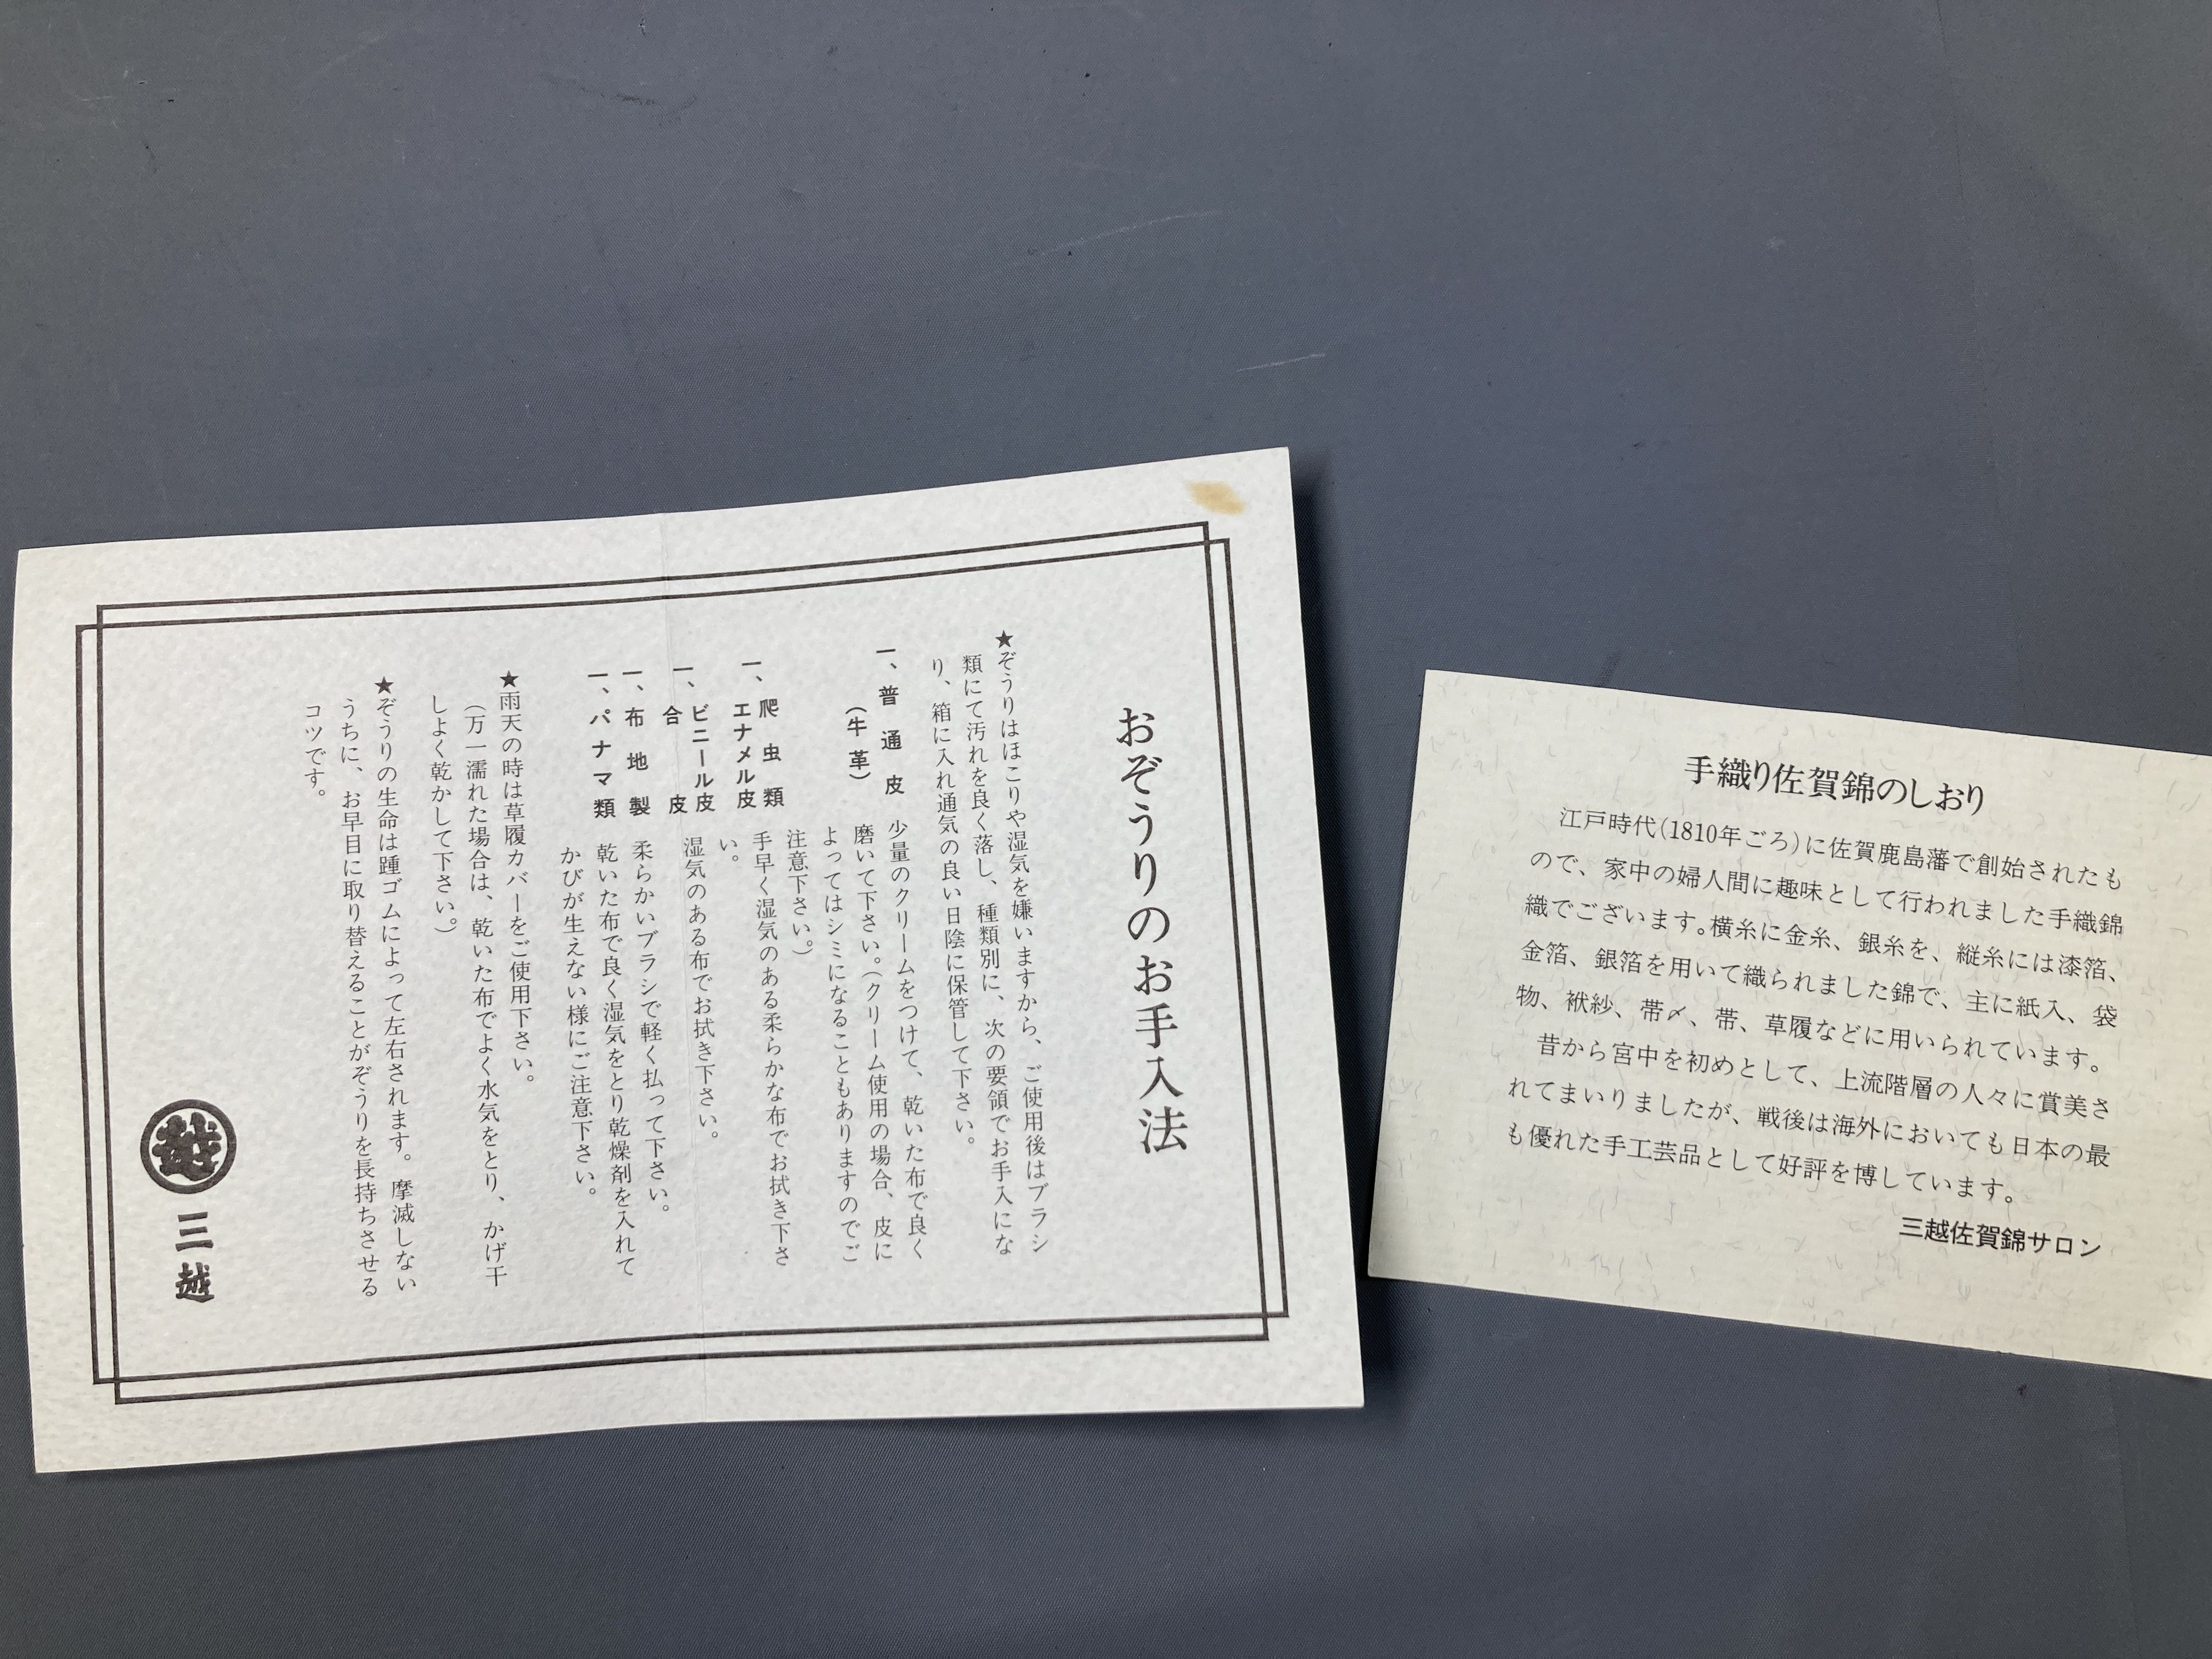 おぞうりのお手入法
★ぞうりはほこりや湿気を嫌いますから、ご使用後はブラシ
類にて汚れを良く落し、種類別に、次の要領でお手入にな
り、箱に入れ通気の良い日陰に保管して下さい。
一、普通皮 少量のクリームをつけて、乾いた布で良く
(牛革) 磨いて下さい。(クリーム使用の場合、皮に
よってはシミになることもありますのでご
注意下さい。)
一、爬虫類 手早く湿気のある柔らかな布でお拭き下さ
エナメル皮 い。
一、ビニール皮 湿気のある布でお拭き下さい。
合皮
一、布地製 柔らかいブラシで軽く払って下さい。
一、パナマ類 乾いた布で良く湿気をとり乾燥剤を入れて
かびが生えない様にご注意下さい。
★雨天の時は草履カバーをご使用下さい。
(万一濡れた場合は、乾いた布でよく水気をとり、かげ干
しよく乾かして下さい。)
★ぞうりの生命は踵ゴムによって左右されます。摩滅しない
うちに、お早目に取り替えることがぞうりを長持ちさせる
コツです。
越 三越
手織り佐賀錦のしおり
江戸時代(1810年ごろ)に佐賀鹿島藩で創始されたも
ので、家中の婦人間に趣味として行われました手織錦
織でございます。横糸に金糸、銀糸を、縦糸には漆箔、
金箔、銀箔を用いて織られました錦で、主に紙入、袋
物、袱紗、帯〆、帯、草履などに用いられています。
昔から宮中を初めとして、上流階層の人々に賞美さ
れてまいりましたが、戦後は海外においても日本の最
も優れた手工芸品として好評を博しています。
三越佐賀錦サロン